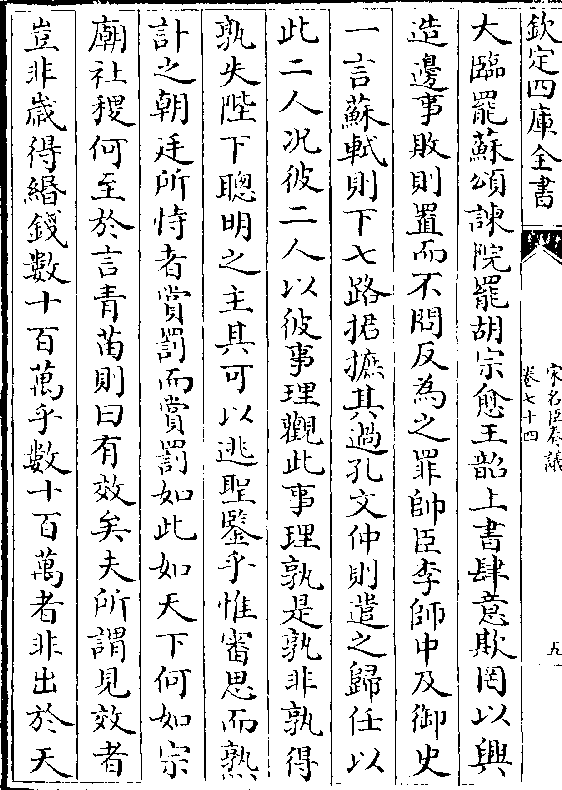 欽定四庫全書
宋名臣奏議
卷七十四
五
大臨罷蘇頌諫院罷胡宗愈王韶上書肆意欺罔以興
造邊事敗則置而不問反為之罪帥臣李師中及御史
一言蘇軾則下七路捃摭其過孔文仲則遣之歸任以
此二人况彼二人以彼事理觀此事理孰是孰非孰得
孰失陛下聰明之主其可以逃聖鑒乎惟審思而熟
計之朝廷所恃者賞罰而賞罰如此如天下何如宗
廟社稷何至於言青苗則曰有效矣夫所謂見效者
豈非歲得緡錢數十百萬乎數十百萬者非出於天